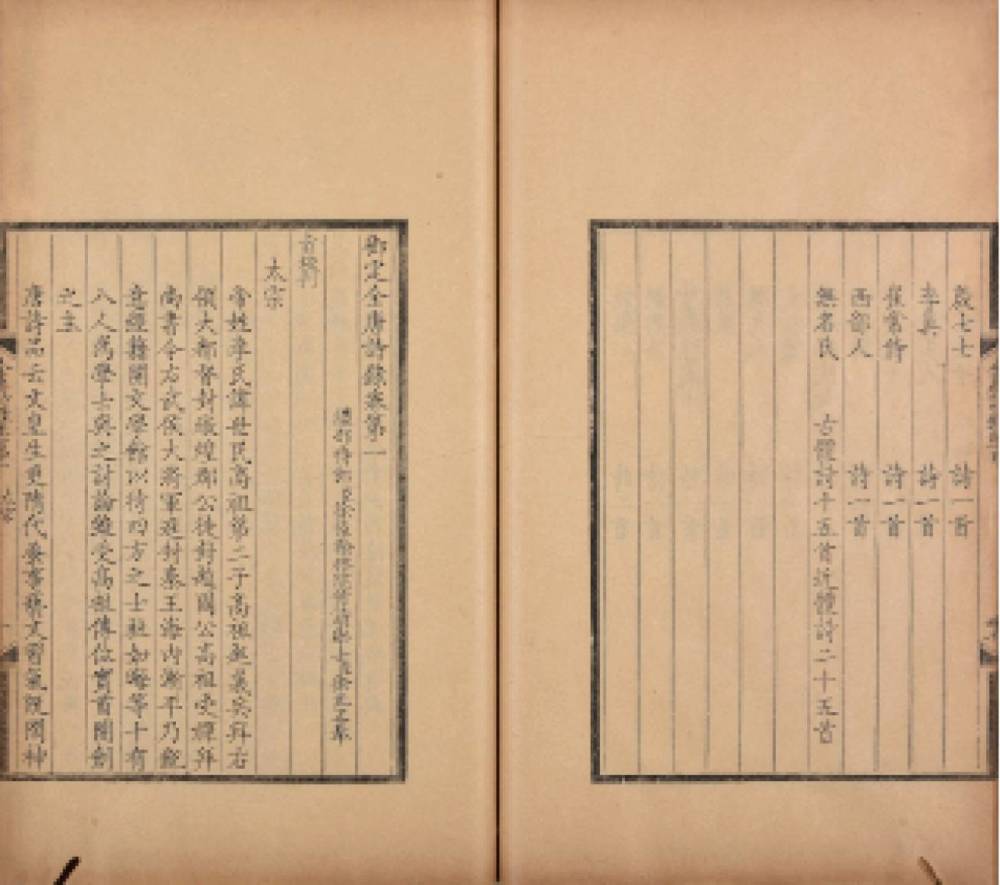 殷七七 詩一首
李真 詩一首
崔常侍 詩一首
西鄙人 詩一首
無名氏 古體詩十五首近體詩二十五首
御定全唐詩錄卷第一
禮部侍郎
古體
太宗
帝姓李氏諱世民高祖第二子高祖起義兵拜右
領大都督封燉煌郡公徙封趙國公高祖受禪拜
尚書令右武侯大將軍進封秦王海内漸平乃銳
意經籍開文學館以待四方之士杜如晦等十有
八人為學士與之討論繼受高祖傳位實首開創
之主
唐詩品云文皇生更隋代兼事藝文習氣既閑神